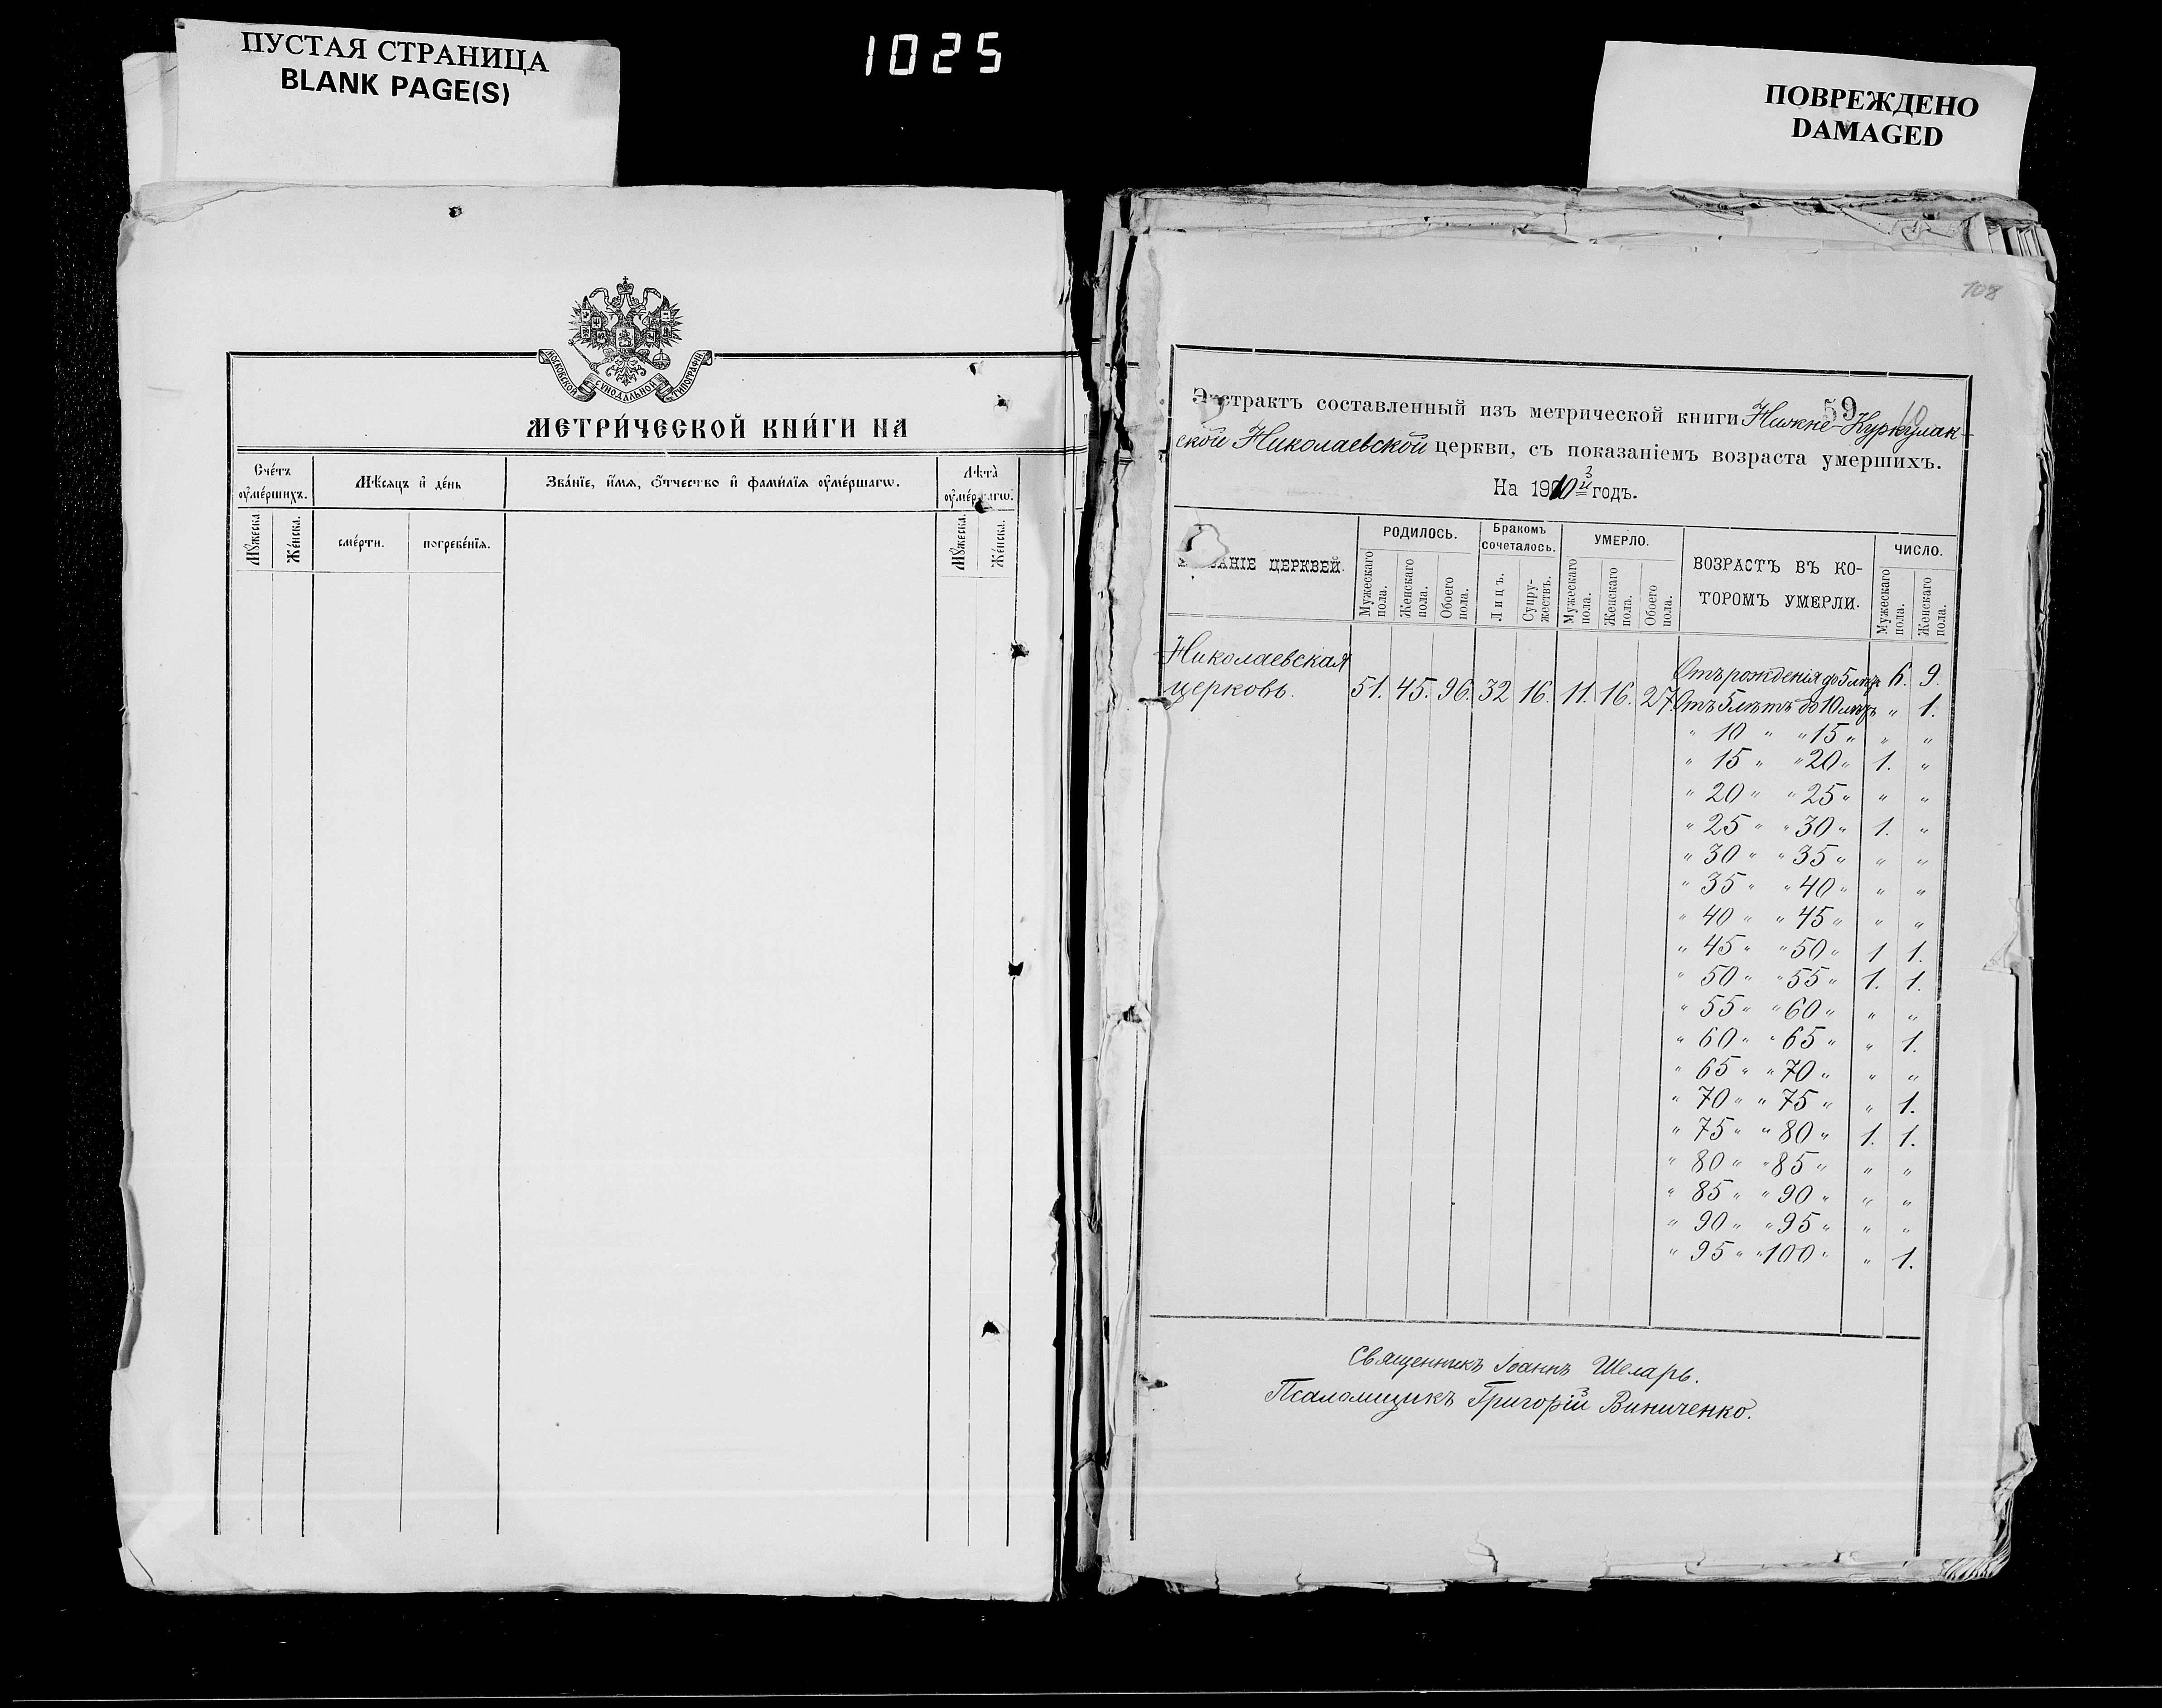 ПУСТАЯ СТРАНИЦА
BLANK PAGE(S)
1025
ПОВРЕЖДЕНО
DAMAGED
МОСКОВСКОЙ СѴНОДАЛЬНОЙ ТИПОГРАФІИ
МЕТРИ́ЧЕСКОЙ КНИ́ГИ НА
Сче́тъ ᲂу҆ме́ршихъ.
Мѣ́сяцъ и҆ де́нь
Зва́нїе, и҆́мя, ѻ҆́тчество и҆ фами́лїя ᲂу҆ме́ршагѡ.
Лѣ́та ᲂу҆ме́ршагѡ.
Мꙋ́жеска. Же́нска. сме́рти. погребе́нїя. Мꙋ́жеска. Же́нска.
108
59
Экстрактъ составленный изъ метрической книги Нижне-Куркулак-
ской Николаевской церкви, съ показаніемъ возраста умершихъ.
На 1910й годъ.
ЗВАНІЕ ЦЕРКВЕЙ.
РОДИЛОСЬ.
Бракомъ сочеталось.
УМЕРЛО.
ВОЗРАСТЪ ВЪ КО-
ТОРОМЪ УМЕРЛИ.
ЧИСЛО.
Мужескаго пола. Женскаго пола. Обоего пола. Лицъ. Супру-жествъ. Мужескаго пола. Женскаго пола. Обоего пола. Мужескаго пола. Женскаго пола.
Николаевская
церковь. 51. 45. 96. 32 16. 11. 16. 27
Отъ рожденія до 5 лѣтъ 6. 9.
Отъ 5 лѣтъ до 10 лѣтъ " 1.
" 10 " " 15 " " "
" 15 " " 20 " 1. "
" 20 " " 25 " " "
" 25 " " 30 " 1. "
" 30 " " 35 " " "
" 35 " " 40 " " "
" 40 " " 45 " " "
" 45 " " 50 " 1 1.
" 50 " " 55 " 1. 1.
" 55 " " 60 " " "
" 60 " " 65 " " 1.
" 65 " " 70 " " "
" 70 " " 75 " " 1.
" 75 " " 80 " 1. 1.
" 80 " " 85 " " "
" 85 " " 90 " " "
" 90 " " 95 " " "
" 95 " " 100 " " 1.
Священникъ Іоаннъ Шеларь.
Псаломщикъ Григорій Виниченко.